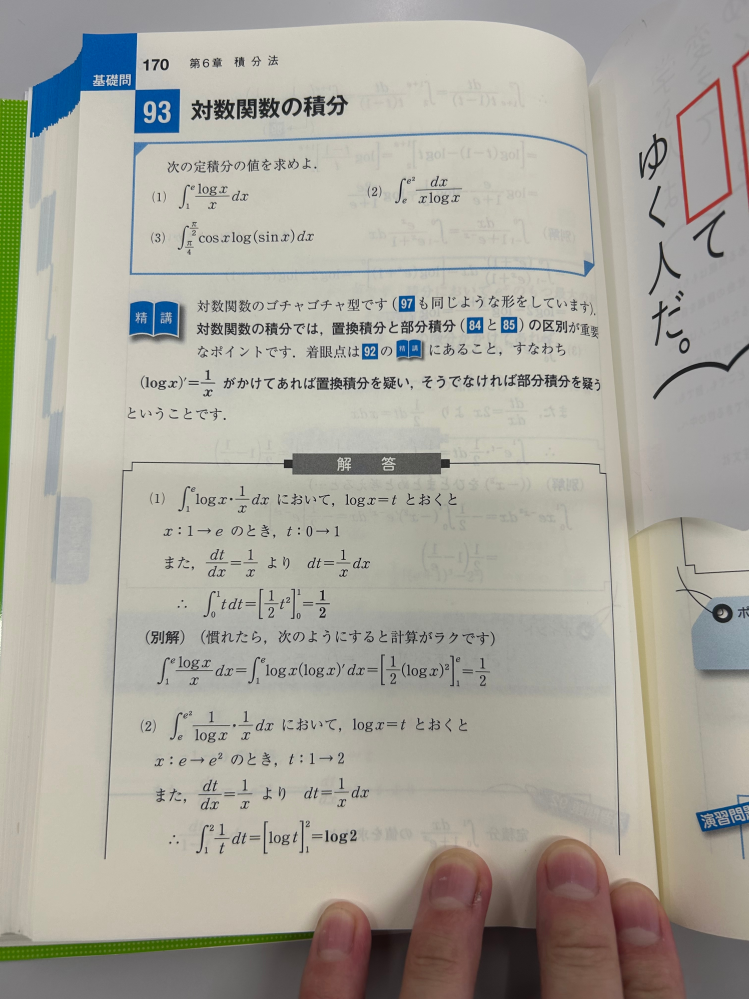 基礎問
170 第6章 積分法
93 対数関数の積分
次の定積分の値を求めよ．
(1) ∫₁^e (log x)/x dx (2) ∫_e^{e²} dx/(x log x)
(3) ∫_{π/4}^{π/2} cos x log(sin x) dx
精講 対数関数のゴチャゴチャ型です（97も同じような形をしています）．
対数関数の積分では，置換積分と部分積分（84と85）の区別が重要
なポイントです．着眼点は92の精講にあること，すなわち
(log x)′=1/x がかけてあれば置換積分を疑い，そうでなければ部分積分を疑う
ということです．
解答
(1) ∫₁^e log x・1/x dx において，log x=t とおくと
x：1→e のとき，t：0→1
また，dt/dx=1/x より dt=1/x dx
∴ ∫₀¹ t dt=[1/2 t²]₀¹=1/2
（別解）（慣れたら，次のようにすると計算がラクです）
∫₁^e (log x)/x dx=∫₁^e log x(log x)′dx=[1/2(log x)²]₁^e=1/2
(2) ∫_e^{e²} 1/(log x)・1/x dx において，log x=t とおくと
x：e→e² のとき，t：1→2
また，dt/dx=1/x より dt=1/x dx
∴ ∫₁² 1/t dt=[log t]₁²=log 2
て
ゆく人だ。
ポ
演習問題